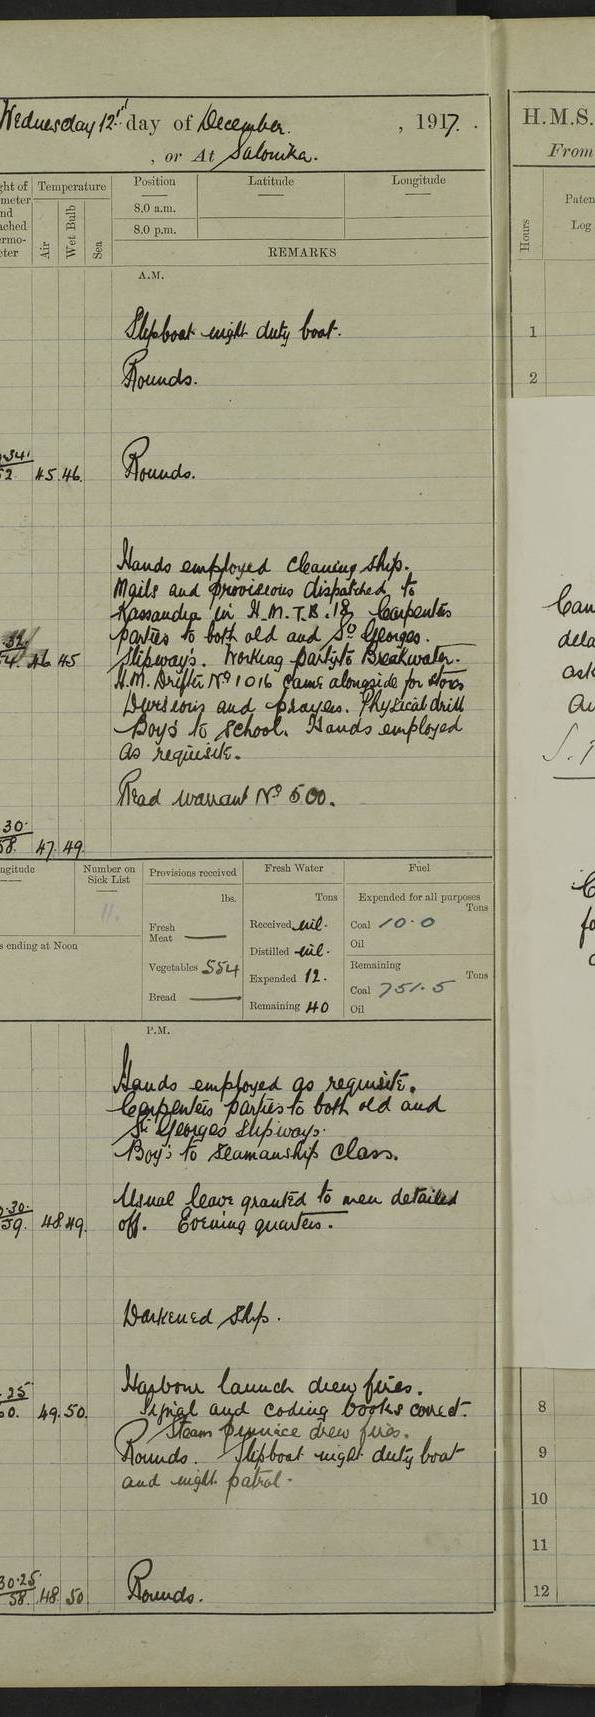 Wednesday 12th day of December, 1917.
, or At Salonika.
H.M.S.
From
Temperature
Position
Latitude
Longitude
Air
Wet Bulb
Sea
8.0 a.m.
8.0 p.m.
REMARKS
Hours
Paten
Log
A.M.
Slipboat night duty boat.
1
Rounds.
2
45. 46.
Rounds.
Hands employed cleaning ship.
Mails and provisions dispatched to
Kassandra in H.M.T.B. 18 Carpenters
parties to both old and St Georges.
46 45
Slipway's. Working party to Breakwater.
H.M. Drifter No 1016 came alongside for stores
Divisions and prayers. Physical drill
Boy's to School. Hands employed
as requisite.
Read warrant No 500.
30.
58. 47. 49.
ngitude
Number on Sick List
11.
s ending at Noon
Provisions received
lbs.
Fresh Meat —
Vegetables 554
Bread —
Fresh Water
Tons
Received nil.
Distilled nil.
Expended 12.
Remaining 40
Fuel
Expended for all purposes
Tons
Coal 10.0
Oil
Remaining
Tons
Coal 751.5
Oil
P.M.
Hands employed as requisite.
Carpenters parties to both old and
St Georges Slipways.
Boy's to Seamanship Class.
Usual leave granted to men detailed
59. 48. 49.
off. Evening quarters.
Darkened Ship.
Harbour launch drew fires.
49. 50.
Signal and coding books correct.
8
Steam pinnace drew fires.
Rounds. Slipboat night duty boat
9
and night patrol.
10
11
30.25
58. 48 50
Rounds.
12